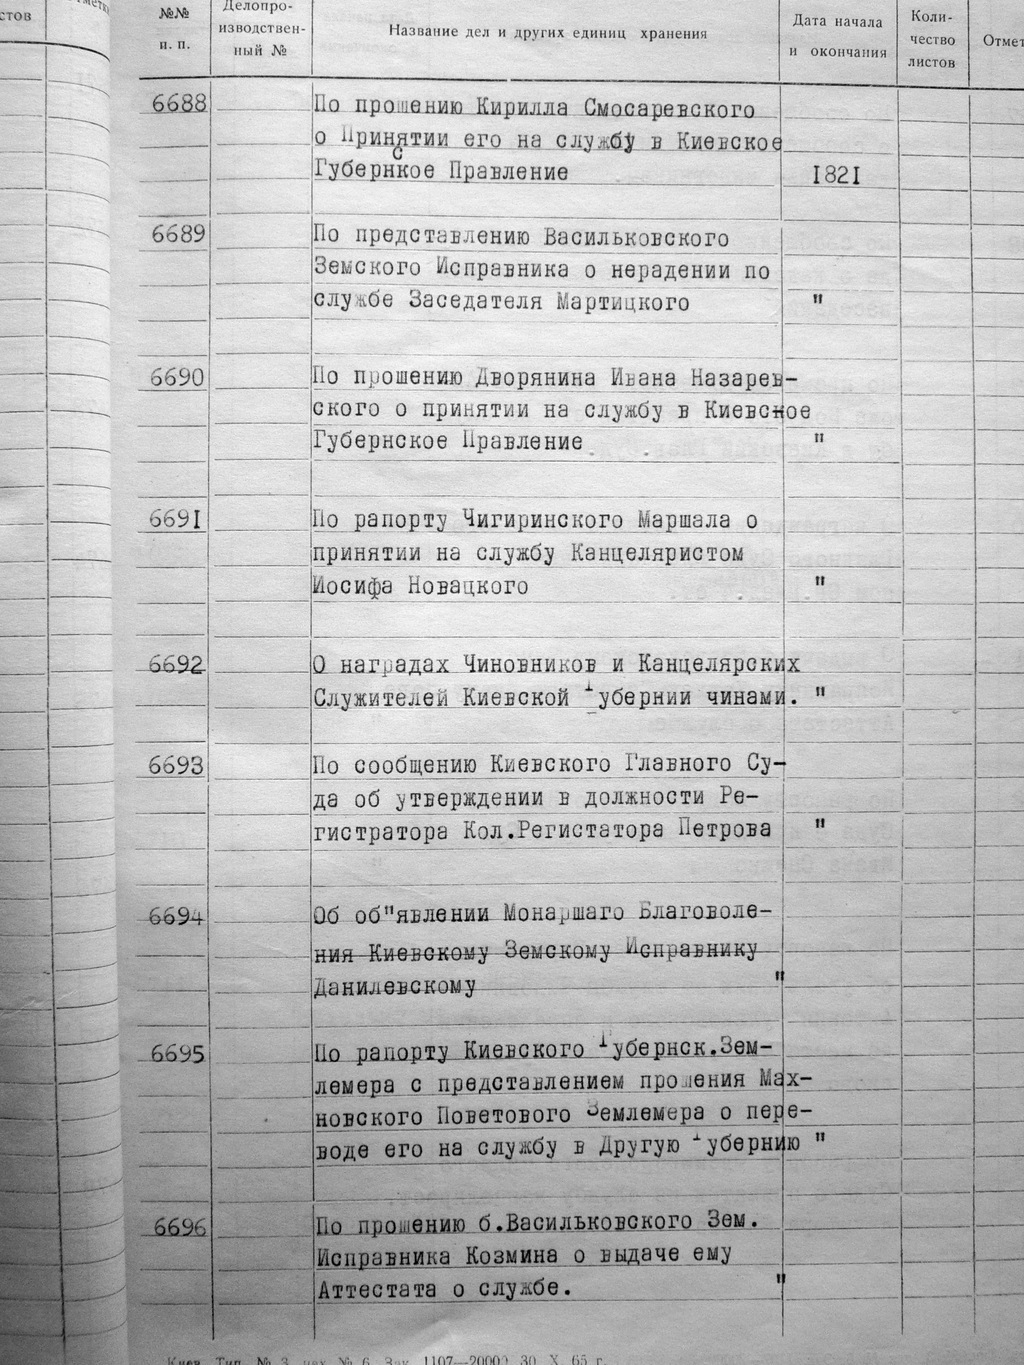 стов
№№
п. п.
Делопро-
изводствен-
ный №
Название дел и других единиц хранения
Дата начала
и окончания
Коли-
чество
листов
Отмет
6688 По прошению Кирилла Смосаревского
о Принятии его на службу в Киевское
Губернское Правление 1821
6689 По представлению Васильковского
Земского Исправника о нерадении по
службе Заседателя Мартицкого "
6690 По прошению Дворянина Ивана Назарев-
ского о принятии на службу в Киевсное
Губернское Правление "
6691 По рапорту Чигиринского Маршала о
принятии на службу Канцеляристом
Иосифа Новацкого "
6692 О наградах Чиновников и Канцелярских
Служителей Киевской Губернии чинами. "
6693 По сообщению Киевского Главного Су-
да об утверждении в должности Ре-
гистратора Кол.Регистатора Петрова "
6694 Об об"явлении Монаршаго Благоволе-
ния Киевскому Земскому Исправнику
Данилевскому "
6695 По рапорту Киевского Губернск.Зем-
лемера с представлением прошения Мах-
новского Поветового Землемера о пере-
воде его на службу в Другую Губернию "
6696 По прошению б.Васильковского Зем.
Исправника Козмина о выдаче ему
Аттестата о службе. "
Киев. Тип. № 3, цех № 6. Зак. 1107—20000 30 X 65 г.